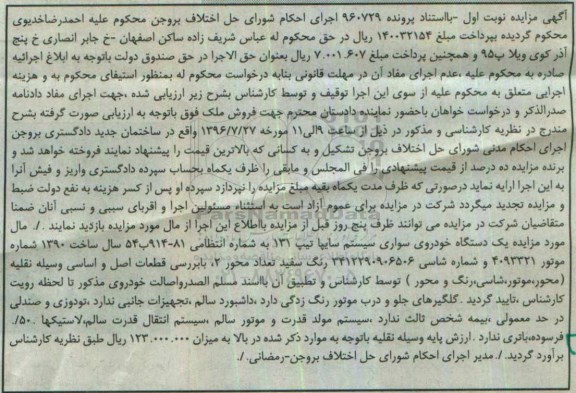 آگهی مزایده نوبت اول -بااستناد پرونده ۹۶۰۷۲۹ اجرای احکام شورای حل اختلاف بروجن محکوم علیه احمدرضاخدیوی
محکوم گردیده بپرداخت مبلغ ۱۴۰۰۳۲۱۵۴ ریال در حق محکوم له عباس شریف زاده ساکن اصفهان -خ جابر انصاری خ پنج
آذر کوی ویلا پ۹۵ و همچنین پرداخت مبلغ ۷.۰۰۱.۶۰۷ ریال بعنوان حق الاجرا در حق صندوق دولت باتوجه به ابلاغ اجرائیه
صادره به محکوم علیه ،عدم اجرای مفاد آن در مهلت قانونی بنابه درخواست محکوم له بمنظور استیفای محکوم به و هزینه
اجرایی متعلق به محکوم علیه از سوی این اجرا توقیف و توسط کارشناس بشرح زیر ارزیابی شده ،جهت اجرای مفاد دادنامه
صدرالذکر و درخواست خواهان باحضور نماینده دادستان محترم جهت فروش ملک فوق باتوجه به ارزیابی صورت گرفته بشرح
مندرج در نظریه کارشناسی و مذکور در ذیل از ساعت ۹الی۱۱ مورخه ۱۳۹۶/۷/۲۷ واقع در ساختمان جدید دادگستری بروجن
اجرای احکام مدنی شورای حل اختلاف بروجن تشکیل و به کسانی که بالاترین قیمت را پیشنهاد نمایند فروخته خواهد شد و
برنده مزایده ده درصد از قیمت پیشنهادی را فی المجلس و مابقی را ظرف یکماه بحساب سپرده دادگستری واریز و فیش آنرا
به این اجرا ارایه نماید درصورتی که ظرف مدت یکماه بقیه مبلغ مزایده را نپردازد سپرده او پس از کسر هزینه به نفع دولت ضبط
و مزایده تجدید میگردد شرکت در مزایده برای عموم آزاد است به استثناء مسئولین اجرا و اقربای سببی و نسبی آنان ضمنا
متقاضیان شرکت در مزایده می توانند ظرف پنج روز قبل از مزایده بااطلاع این اجرا از مال مورد مزایده بازدید نمایند ./. مال
مورد مزایده یک دستگاه خودروی سواری سیستم سایپا تیپ ۱۳۱ به شماره انتظامی ۸۱-۹۱۴ب۵۴ سال ساخت ۱۳۹۰ شماره
موتور ۴۰۹۳۳۲۱ و شماره شاسی ۳۴۱۲۲۹۰۹۰۶۵۰۶ رنگ سفید تعداد محور ۲، بابررسی قطعات اصل و اساسی وسیله نقلیه
(محور،موتور،شاسی،رنگ و محور ) توسط کارشناس و تطبیق آن بااسند مسلم الصدرواصالت خودروی مذکور تا لحظه رویت
کارشناس ،تایید گردید .گلگیرهای جلو و درب موتور رنگ زدگی دارد ،داشبورد سالم ،تجهیزات جانبی ندارد ،تودوزی و صندلی
در حد معمولی ،بیمه شخص ثالث ندارد ،سیستم مولد قدرت و موتور سالم ،سیستم انتقال قدرت سالم،لاستیکها ۵۰/.
فرسوده،باتری ندارد .ارزش پایه وسیله نقلیه باتوجه به موارد ذکر شده در بالا به میزان ۱۲۳.۰۰۰.۰۰۰ ریال طبق نظریه کارشناس
برآورد گردید./. مدیر اجرای احکام شورای حل اختلاف بروجن-رمضانی./.
ParsNamadData